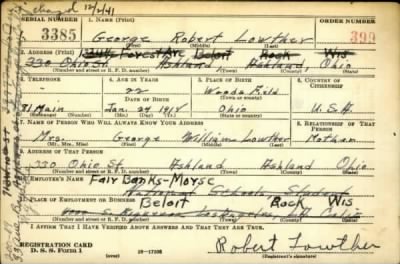 chazd 12/2/41
SERIAL NUMBER 1. NAME (Print) ORDER NUMBER
3385 George Robert Lowther 399
(First) (Middle) (Last)
2. ADDRESS (Print) Forest Ave Beloit Rock Wis
330 Ohio St Ashland Ashland, Ohio
(Number and street or R. F. D. number) (Town) (County) (State)
3. TELEPHONE 4. AGE IN YEARS 5. PLACE OF BIRTH 6. COUNTRY OF CITIZENSHIP
22 Woodsfield
DATE OF BIRTH (Town or county)
81 Main Jan. 29 1918 Ohio U.S.A.
(Mo.) (Day) (Yr.) (State or country)
7. NAME OF PERSON WHO WILL ALWAYS KNOW YOUR ADDRESS 8. RELATIONSHIP OF THAT PERSON
Mrs. George William Lowther Mother
(Mr., Mrs., Miss) (First) (Middle) (Last)
9. ADDRESS OF THAT PERSON
330 Ohio St. Ashland Ashland Ohio
(Number and street or R. F. D. number) (Town) (County) (State)
10. EMPLOYER'S NAME Fair Banks-Morse
Student
11. PLACE OF EMPLOYMENT OR BUSINESS Beloit Rock Wis
(Number and street or R. F. D. number) (Town) (County) (State)
I AFFIRM THAT I HAVE VERIFIED ABOVE ANSWERS AND THAT THEY ARE TRUE.
REGISTRATION CARD
D. S. S. Form 1 16—17105 Robert Lowther
(Registrant's signature)